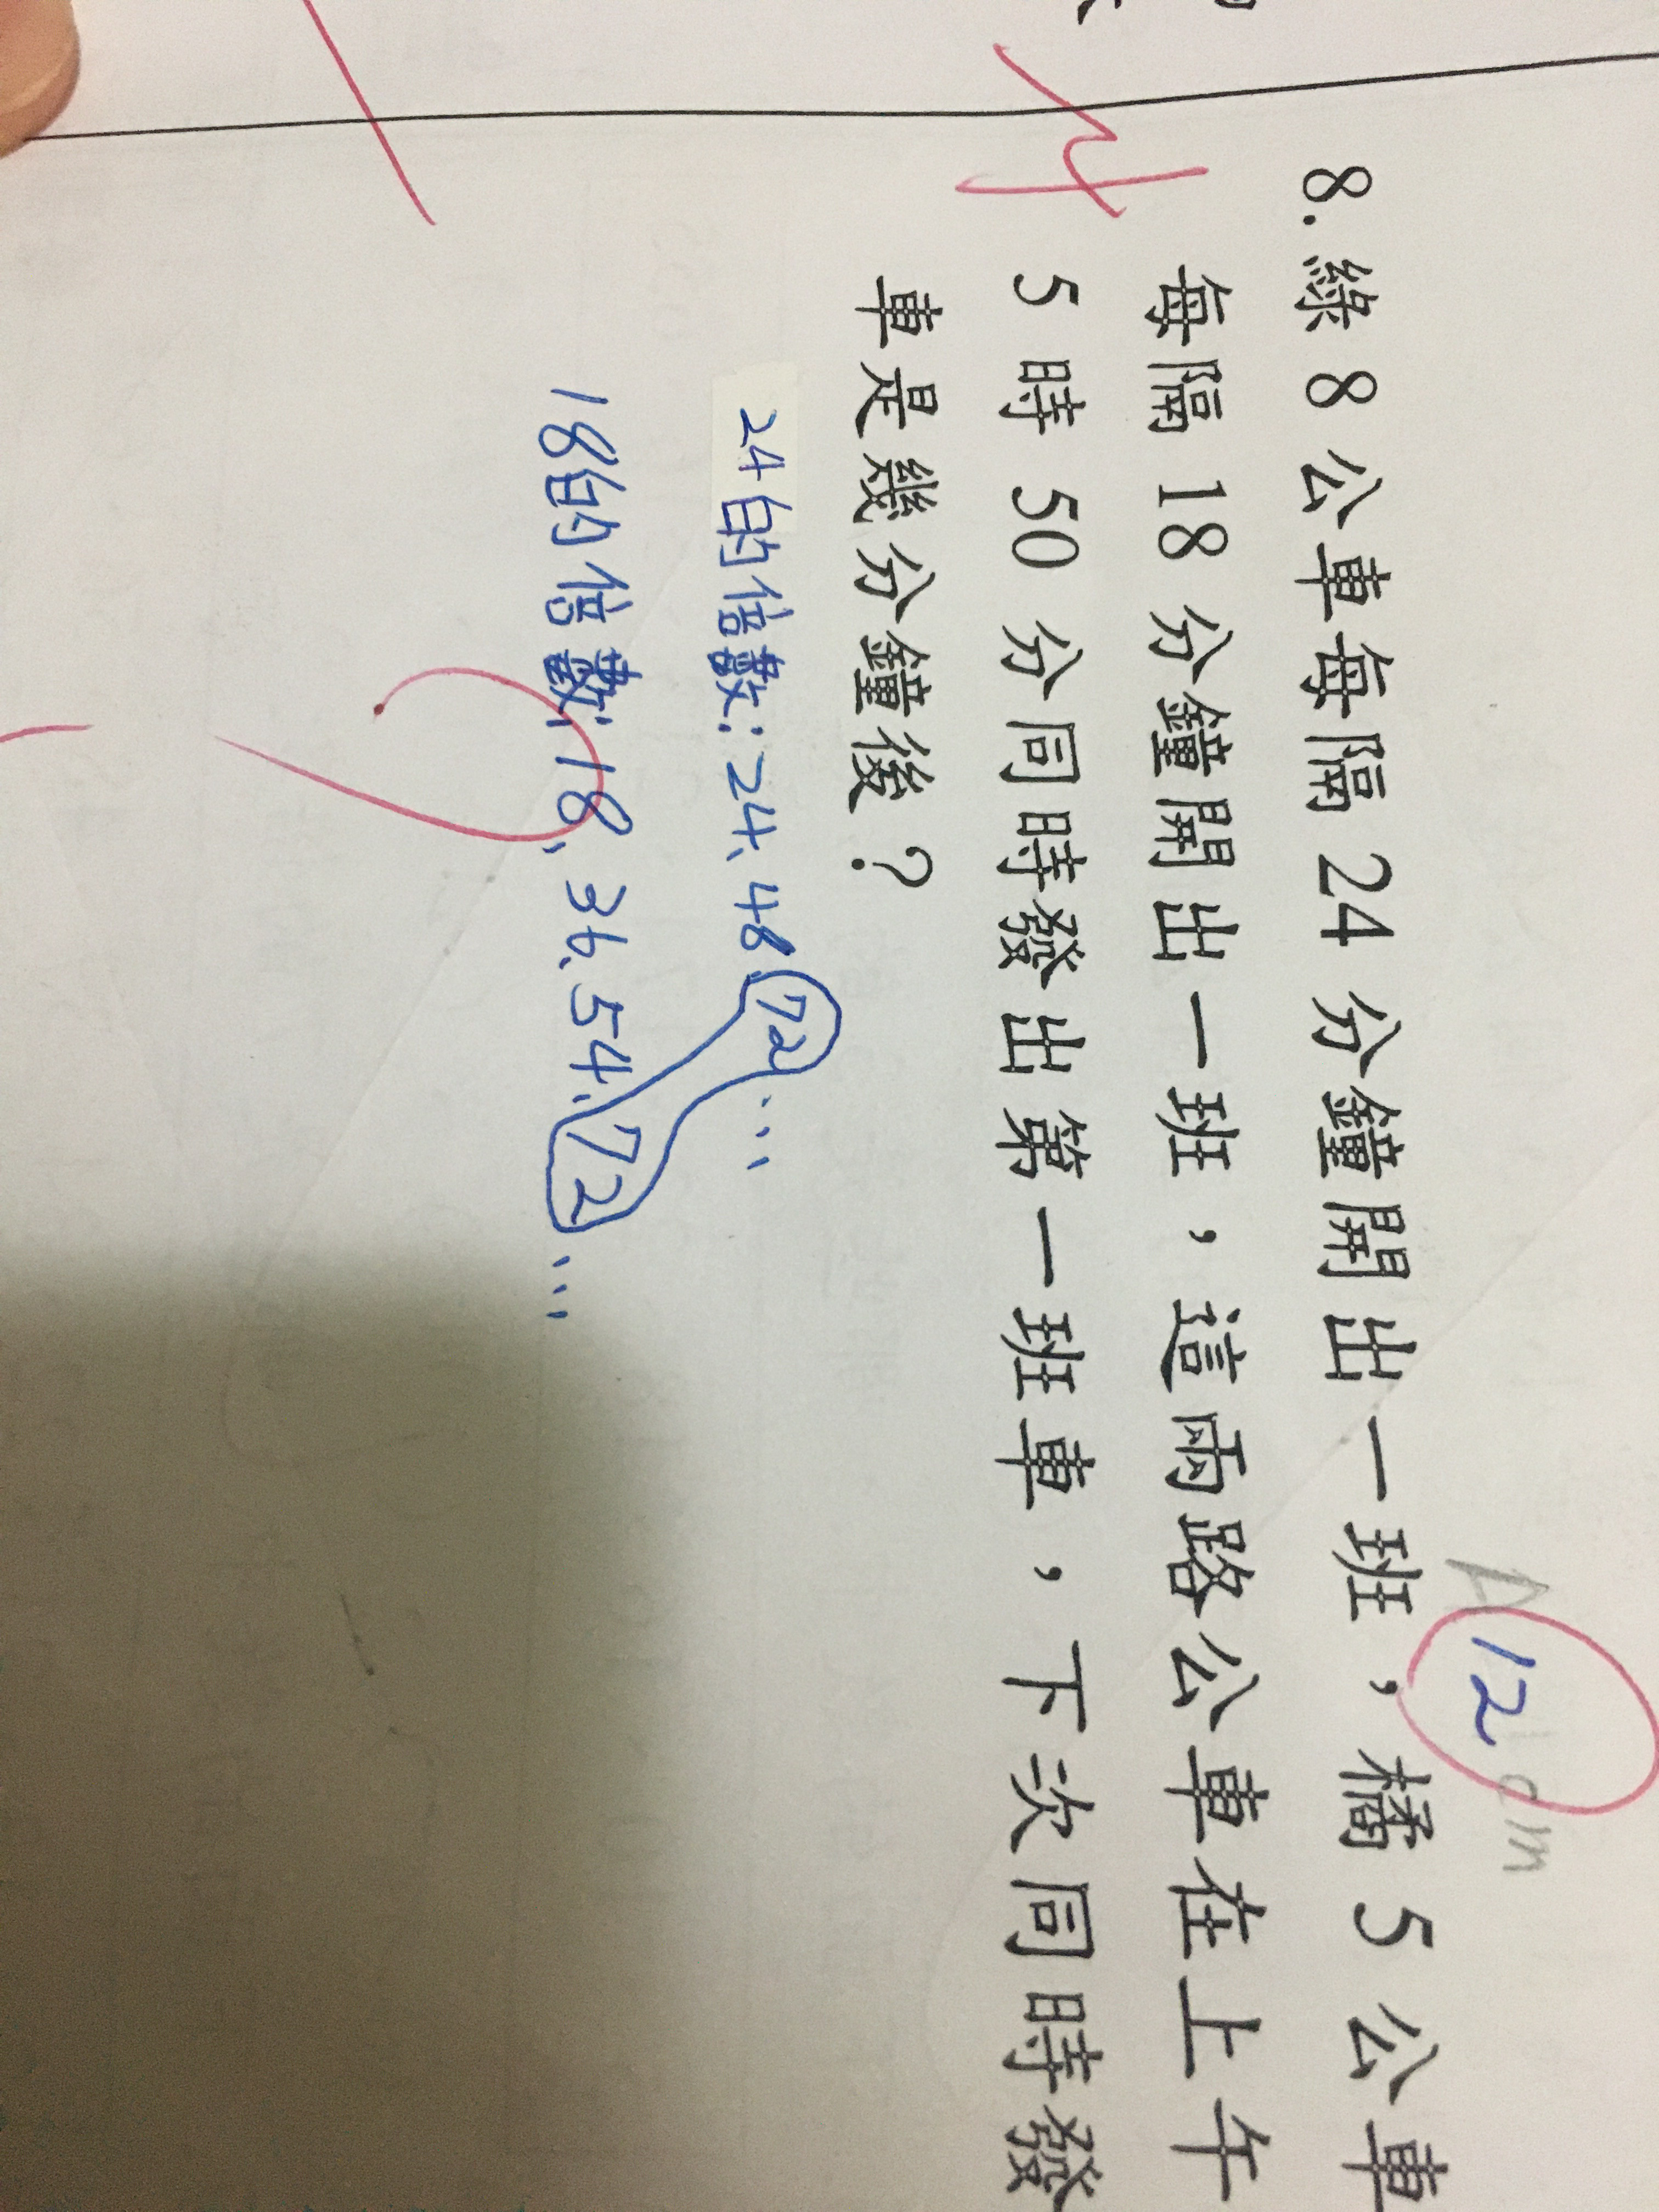 A 12 cm
8. 綠 8 公車每隔 24 分鐘開出一班，橘 5 公車
每隔 18 分鐘開出一班，這兩路公車在上午
5 時 50 分同時發出第一班車，下次同時發
車是幾分鐘後？
24的倍數：24、48、72…
18的倍數：18、36、54、72…